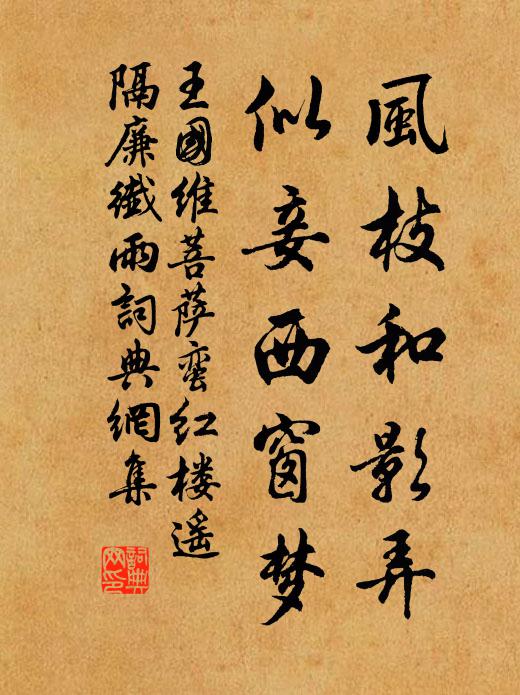 風枝和影弄
似妾西窗梦
王國維菩萨蛮红楼遥
隔廉纖雨詞典網集
詞典
网印